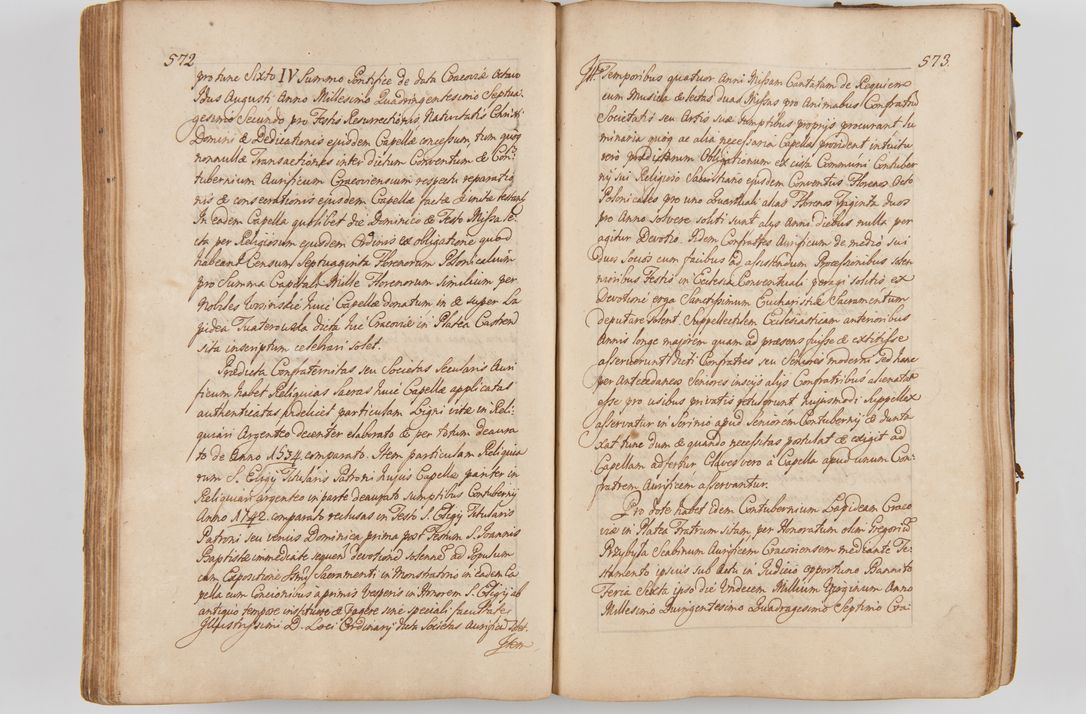 572
pro tunc Sixto IV Summo Pontifice de data Cracoviæ Octavo
Idus Augusti Anno Millesimo Quadringentesimo Septua-
gesimo Secundo pro Festis Resurrectionis Nativitatis Christi
Domini & Dedicationis ejusdem Capellæ concessum, tum quoq
nonnullæ Transactiones inter dictum Conventum & Con-
tubernium Aurificum Cracoviensium respectu reparatio
nis & conservationis ejusdem Capellæ factæ & initæ
In eadem Capella quolibet die Dominico & Festo Missa le-
cta per Religiosum ejusdem Ordinis ex obligatione quod
habeant Censum Septuaginta Florenorum Polonicalium
pro Summa Capitali Mille Florenorum similium per
Nobiles huic Capellæ donatum in & super La
pidea dicta hic Cracoviæ in Platea Castren
sita inscriptum celebrari solet.
Prædicta Confraternitas seu Societas Sæcularis Auri
ficum habet Reliquias Sacras huic Capellæ applicatas
authenticatas videlicet particulam Ligni vitæ in Reli-
quiari Argenteo decenter elaborato & per totum deaura
to de Anno 1534 comparato. Item particulam Reliquia
rum S. Eligij Titularis Patroni hujus Capellæ pariter in
Reliquiari argenteo in parte deaurato sumptibus Contubernij
Anno 1742 comparato reclusas in Festo S. Eligij Titularis
Patroni seu verius Dominica prima post Festum S. Joannis
Baptistæ immediate sequen devotiones solennes ad Populum
cum Expositione Ssmi Sacramenti in Monstratorio in eadem Ca
pella cum Concionibus a primis Vesperis in Honorem S. Eligij ab
antiquo tempore instituere & Pagere sine speciali facultate
Illustrissimi D. Loci Ordinarij dicta Societas Aurificum solet.
Item
573.
Item Temporibus quatuor Anni Missam Cantatam de Requiem
cum Musica & lectas duas Missas pro Animabus Confratru
Societatis seu Artis suæ sumptibus proprijs procurant lu
minaria quoq ac alia necessaria Capellæ provident intuitu
vero prædictarum Obligationum ex cista Communi Contuber
nij sui Religioso Sacristiano ejusdem Conventus Florenos Octo
Polonicales pro uno Quartuali alias Florenos Triginta duos
pro Anno solvere soliti sunt alijs Anni diebus nulla per
agitur Devotio. Idem Confratres Aurificum de medio sui
duos Socios cum facibus ad assistendum Processionibus solen
nioribus Festis in Ecclesia Conventuali peragi solitis ex
Devotione erga Sanctissimum Eucharistiæ Sacramentum
deputare solent. Suppellectilem Ecclesiasticam anterioribus
Annis longe majorem quam ad præsens fuisse & extitisse
asseruerunt dicti Confratres seu Seniores moderni sed hanc
per Antecedaneos Seniores inscijs alijs Confratribus alienatam
esse pro usibus privatis retulerunt hujusmodi Suppellex
asservatur in Scrinio apud Seniorem Contubernij & dunta
xat tunc dum & quando necessitas postulat & exigit ad
Capellam adfertur Claves vero a Capella apud unum Con-
fratrem Aurificem asservantur.
Pro dote habet Idem Contubernium Lapideam Craco
viæ in Platea Fratrum sitam, per Honoratum olim Gregoriu
Przybyla Scabinum Aurificem Cracoviensem mediante Te-
stamento ipsius sub Actu in Judicio opportuno Bannito
Feria Sexta ipso die Undecem Millium Virginum Anno
Millesimo Quingentesimo Quadragesimo Septimo Cra-